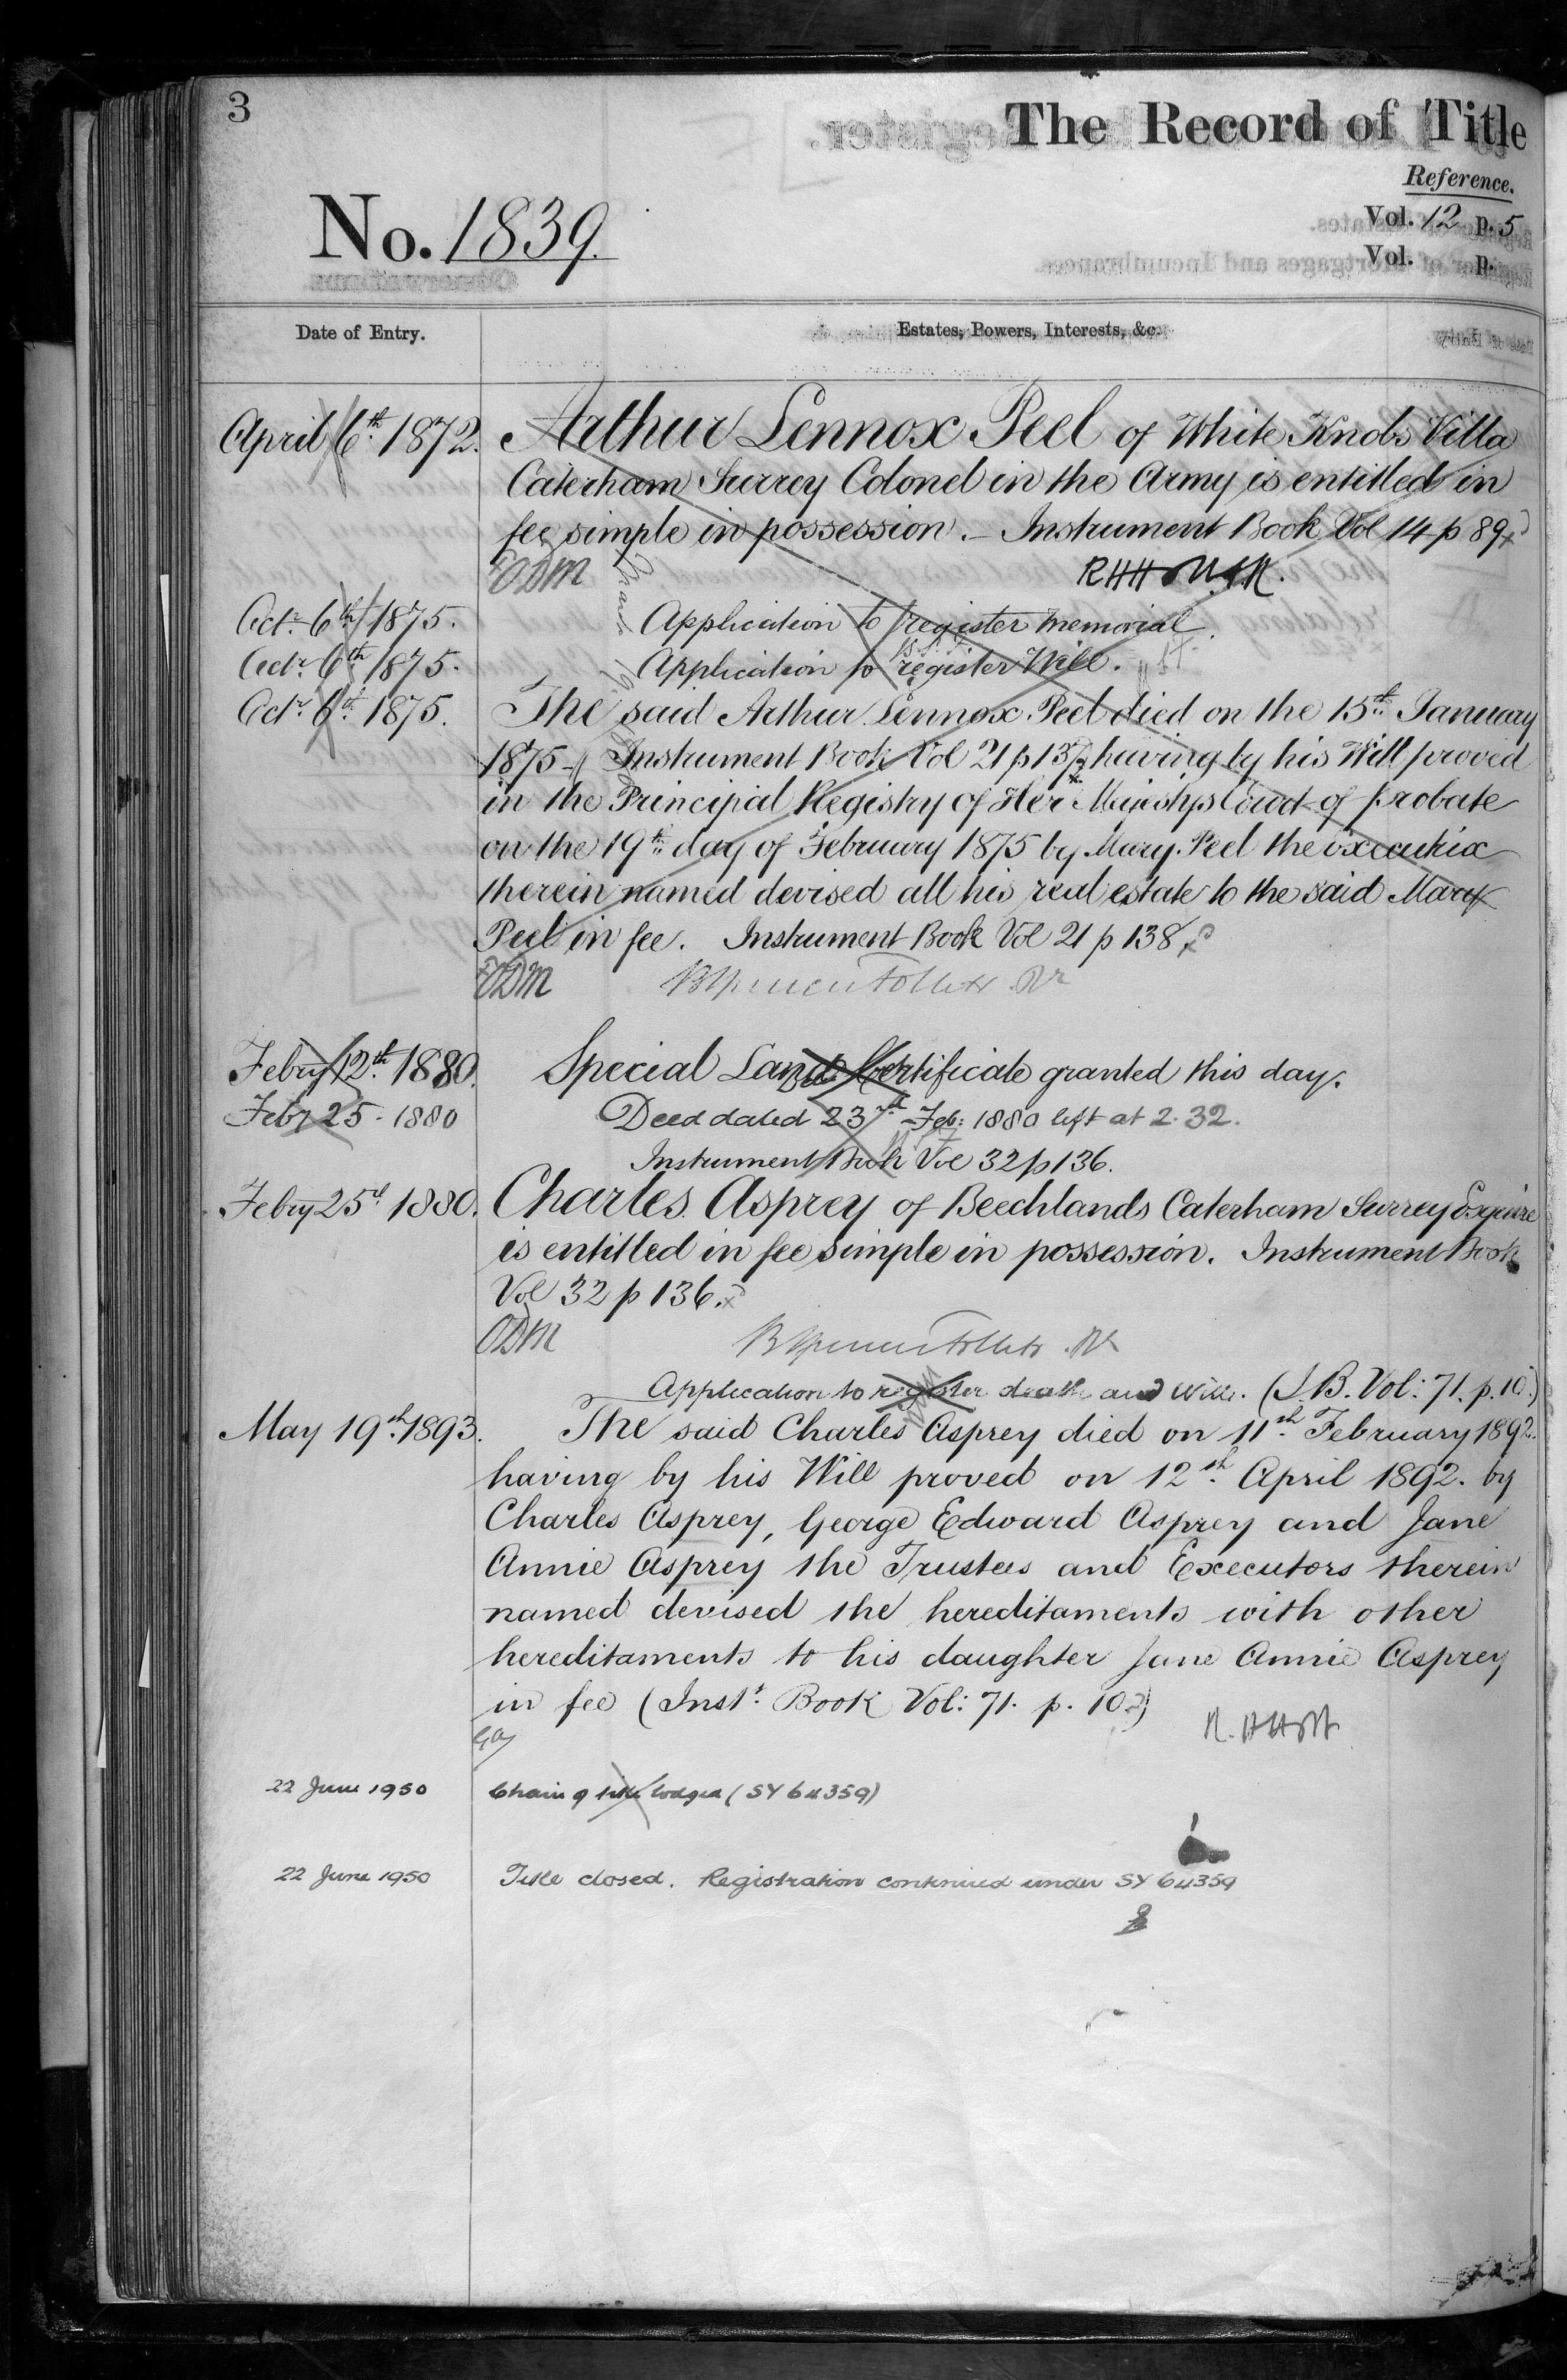 3
The Record of Title
Reference.
No. 1839.
Vol. 12 p. 5
Vol. p.
Date of Entry.
Estates, Powers, Interests, &c.
April 6th 1872. Arthur Lennox Peel of White Knobs Villa
Caterham Surrey Colonel in the Army is entitled in
fee simple in possession. – Instrument Book Vol 14 p 89
Octr. 6th 1875. Application to register memorial.
Octr. 6th 1875. Application to register Will.
Octr. 6th 1875. The said Arthur Lennox Peel died on the 15th January
1875 – Instrument Book Vol 21 p 137 having by his Will proved
in the Principal Registry of Her Majestys Court of probate
on the 19th day of February 1875 by Mary Peel the executrix
therein named devised all his real estate to the said Mary
Peel in fee. Instrument Book Vol 21 p 138
Febry 12th 1880. Special Land Certificate granted this day.
Feby 25 – 1880 Deed dated 23rd Feb: 1880 left at 2.32.
Instrument Book Vol 32 p 136.
Febry 25th 1880. Charles Asprey of Beechlands Caterham Surrey Esquire
is entitled in fee simple in possession. Instrument Book
Vol 32 p 136.
Application to register death and Will. (I.B. Vol: 71. p. 10.)
May 19th 1893. The said Charles Asprey died on 11th February 1892.
having by his Will proved on 12th April 1892. by
Charles Asprey, George Edward Asprey and Jane
Annie Asprey the Trustees and Executors therein
named devised the hereditaments with other
hereditaments to his daughter Jane Annie Asprey
in fee (Inst. Book Vol: 71. p. 10.)
22 June 1950 Chain of title lodged (SY 64359)
22 June 1950 Title closed. Registration continued under SY 64359